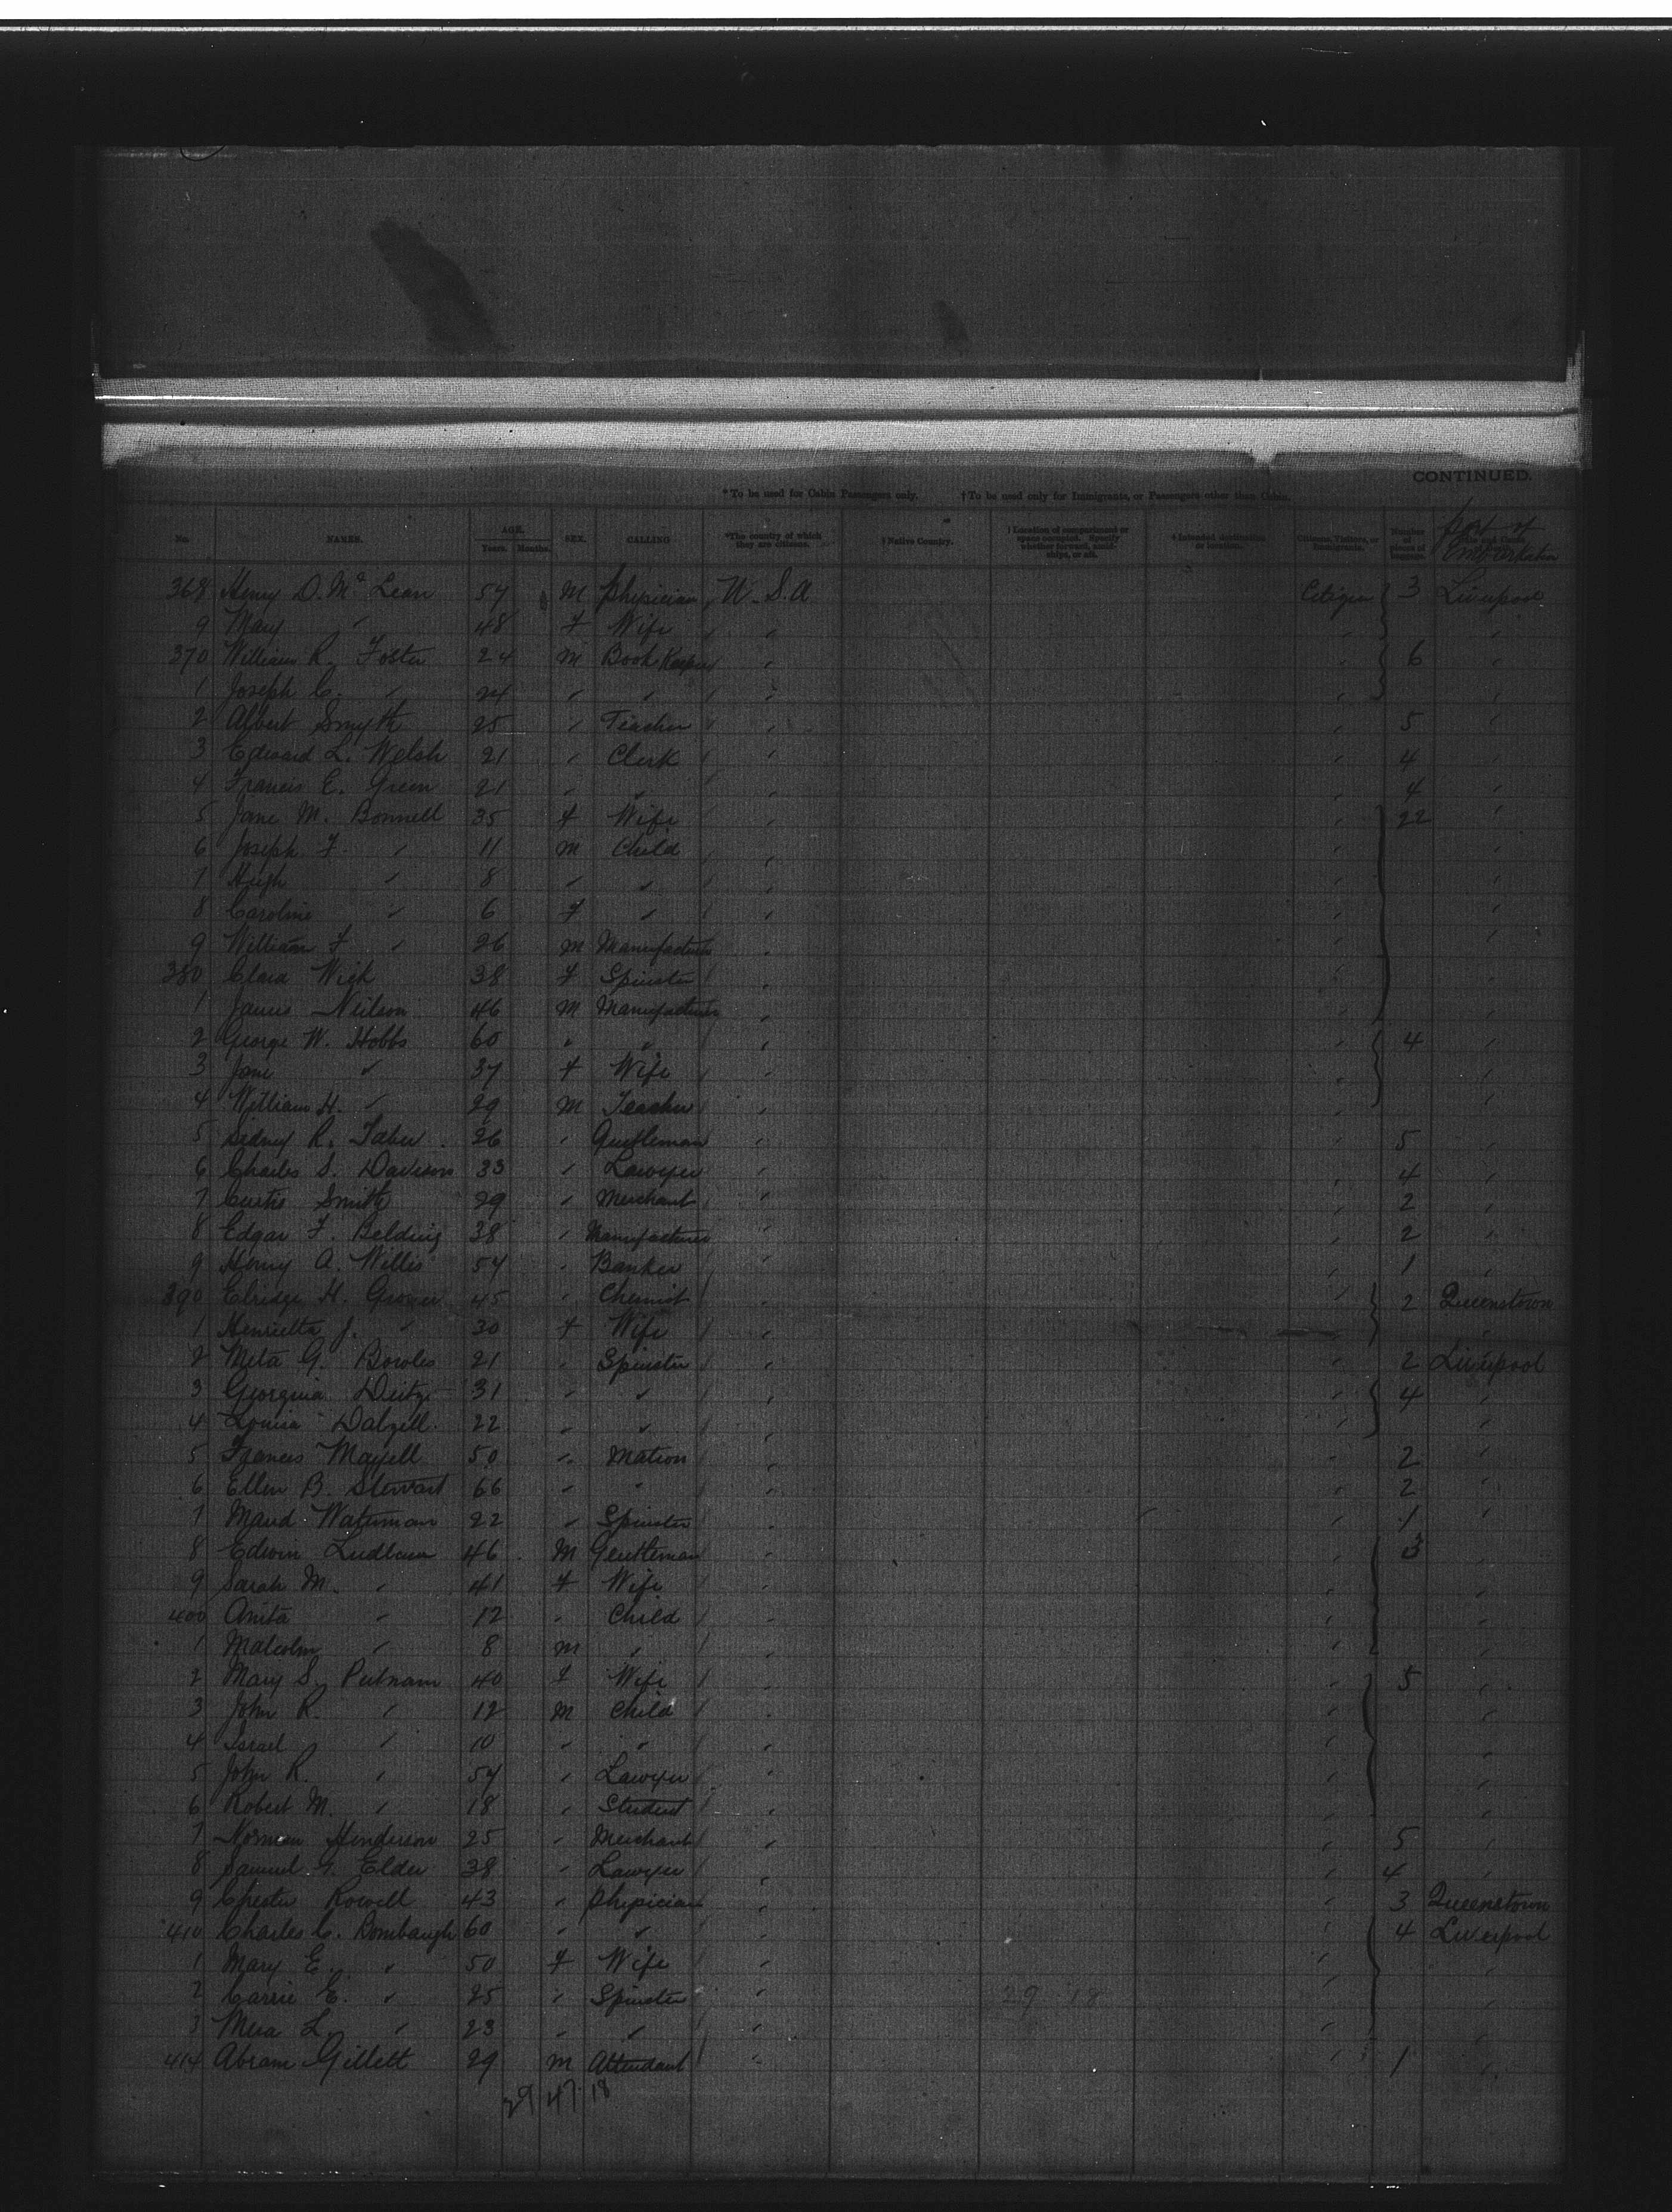 CONTINUED.
*To be used for Cabin Passengers only. †To be used only for Immigrants, or Passengers other than Cabin.
No. NAMES. AGE. Years. Months. SEX. CALLING *The country of which they are citizens. †Native Country. †Location of compartment or space occupied. Specify whether forward, amidships, or aft. †Intended destination or location. Citizens, Visitors, or Immigrants. Number of pieces of baggage. Port of Embarkation
368 Henry D. Mc Lean 54 M Physician U.S.A Citizen 3 Liverpool
9 Mary " 48 F Wife " " "
370 William R. Foster 24 M Book Keeper " " 6 "
1 Joseph C. " 24 " " " " "
2 Albert Smyth 25 " Teacher " " 5 "
3 Edward L. Welsh 21 " Clerk " " 4 "
4 Francis E. Green 21 " " " " 4 "
5 Jane M. Bonnell 35 F Wife " " 22 "
6 Joseph F. " 11 M Child " " "
7 Hugh " 8 " " " " "
8 Caroline " 6 F " " " "
9 William F. " 26 M Manufacturer " " "
380 Clara Wick 38 F Spinster " " "
1 James Neilson 46 M Manufacturer " " "
2 George W. Hobbs 60 " " " " 4 "
3 Jane " 37 F Wife " " "
4 William H. " 29 M Teacher " " "
5 Sidney R. Taber 26 " Gentleman " " 5 "
6 Charles S. Davison 33 " Lawyer " " 4 "
7 Curtis Smith 29 " Merchant " " 2 "
8 Edgar F. Belding 38 " Manufacturer " " 2 "
9 Henry A. Willis 54 " Banker " " 1 "
390 Elridge H. Grover 45 " Chemist " " 2 Queenstown
1 Henrietta J. " 30 F Wife " " "
2 Meta G. Bowles 21 " Spinster " " 2 Liverpool
3 Georgina Deitze 31 " " " " 4 "
4 Louisa Dalzell 22 " " " " "
5 Frances Mayell 50 " Matron " " 2 "
6 Ellen B. Stewart 66 " " " " 2 "
7 Maud Waterman 22 " Spinster " " 1 "
8 Edwin Ludlam 46 M Gentleman " " 3 "
9 Sarah M. " 41 F Wife " " "
400 Anita " 12 " Child " " "
1 Malcolm " 8 M " " " "
2 Mary S. Putnam 40 F Wife " " 5 "
3 John R. " 12 M Child " " "
4 Israel " 10 " " " " "
5 John R. " 54 " Lawyer " " "
6 Robert M. " 18 " Student " " "
7 Norman Henderson 25 " Merchant " " 5 "
8 Samuel G. Elder 38 " Lawyer " " 4 "
9 Chester Rowell 43 " Physician " " 3 Queenstown
410 Charles C. Bombaugh 60 " " " " 4 Liverpool
1 Mary E. " 50 F Wife " " "
2 Carrie E. " 25 " Spinster " 29 18 " "
3 L. " 23 " " " " "
414 Abram Gillett 29 M Attendant " " 1 "
29 47 18